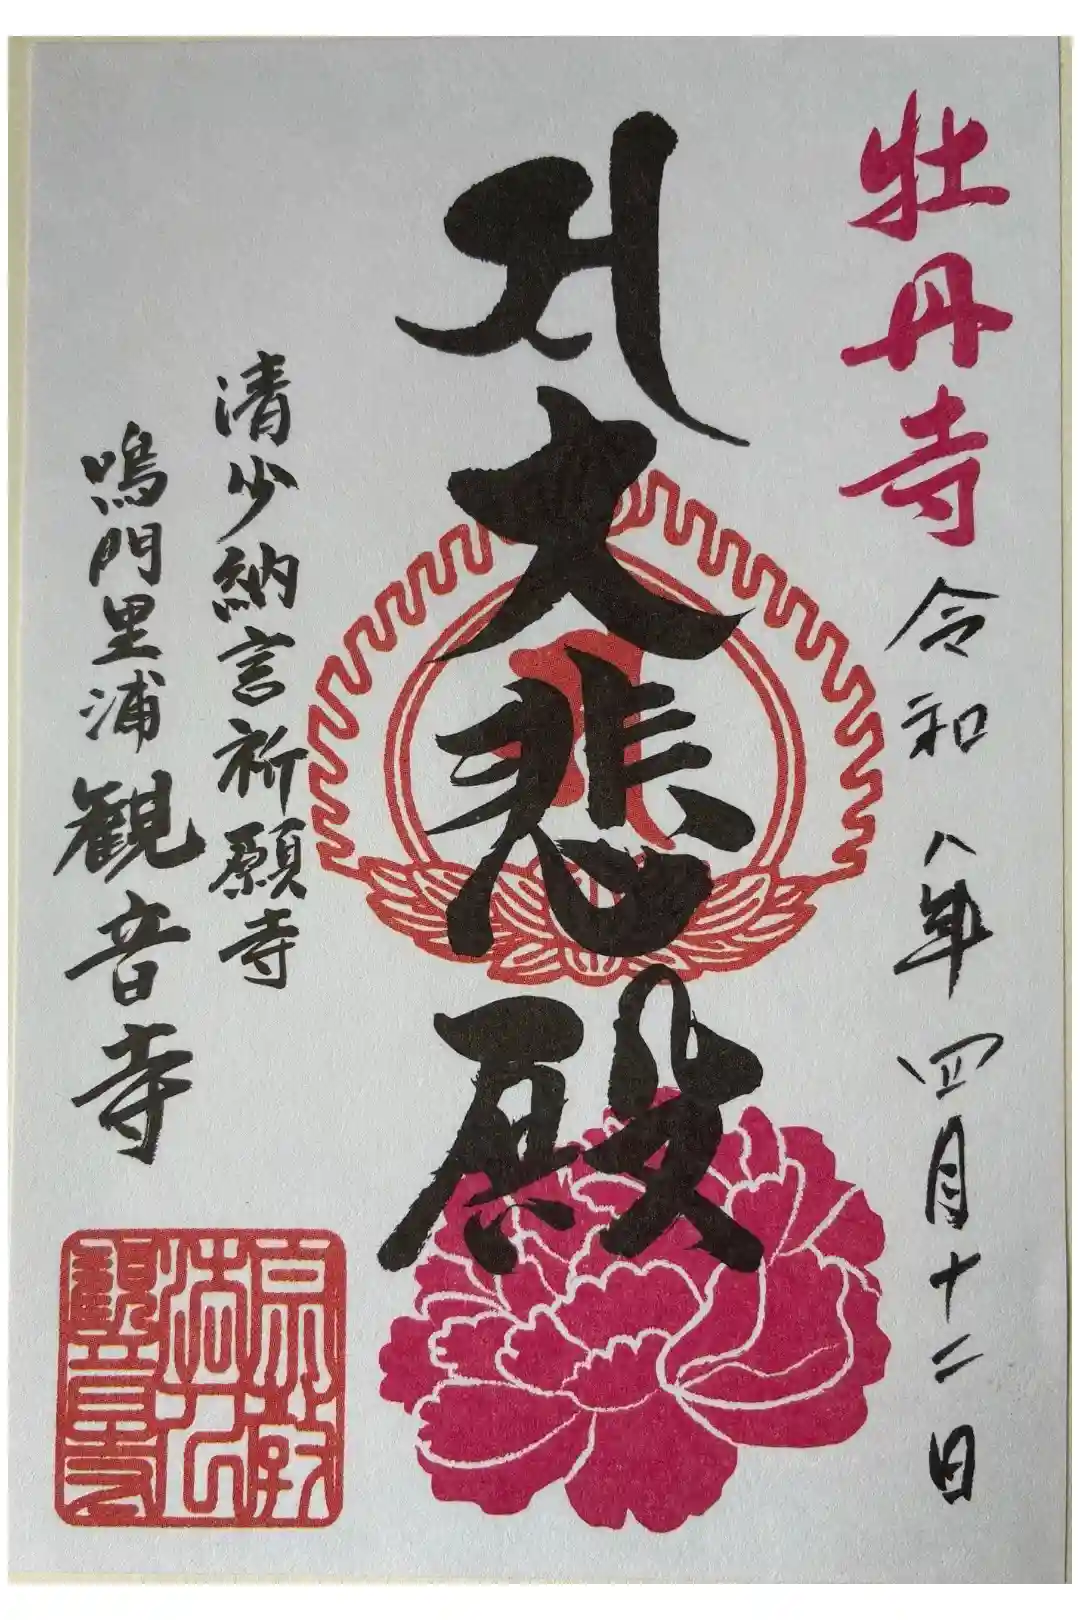 牡丹寺
令和八年四月十二日
大悲殿
清少納言祈願寺
鳴門里浦観音寺